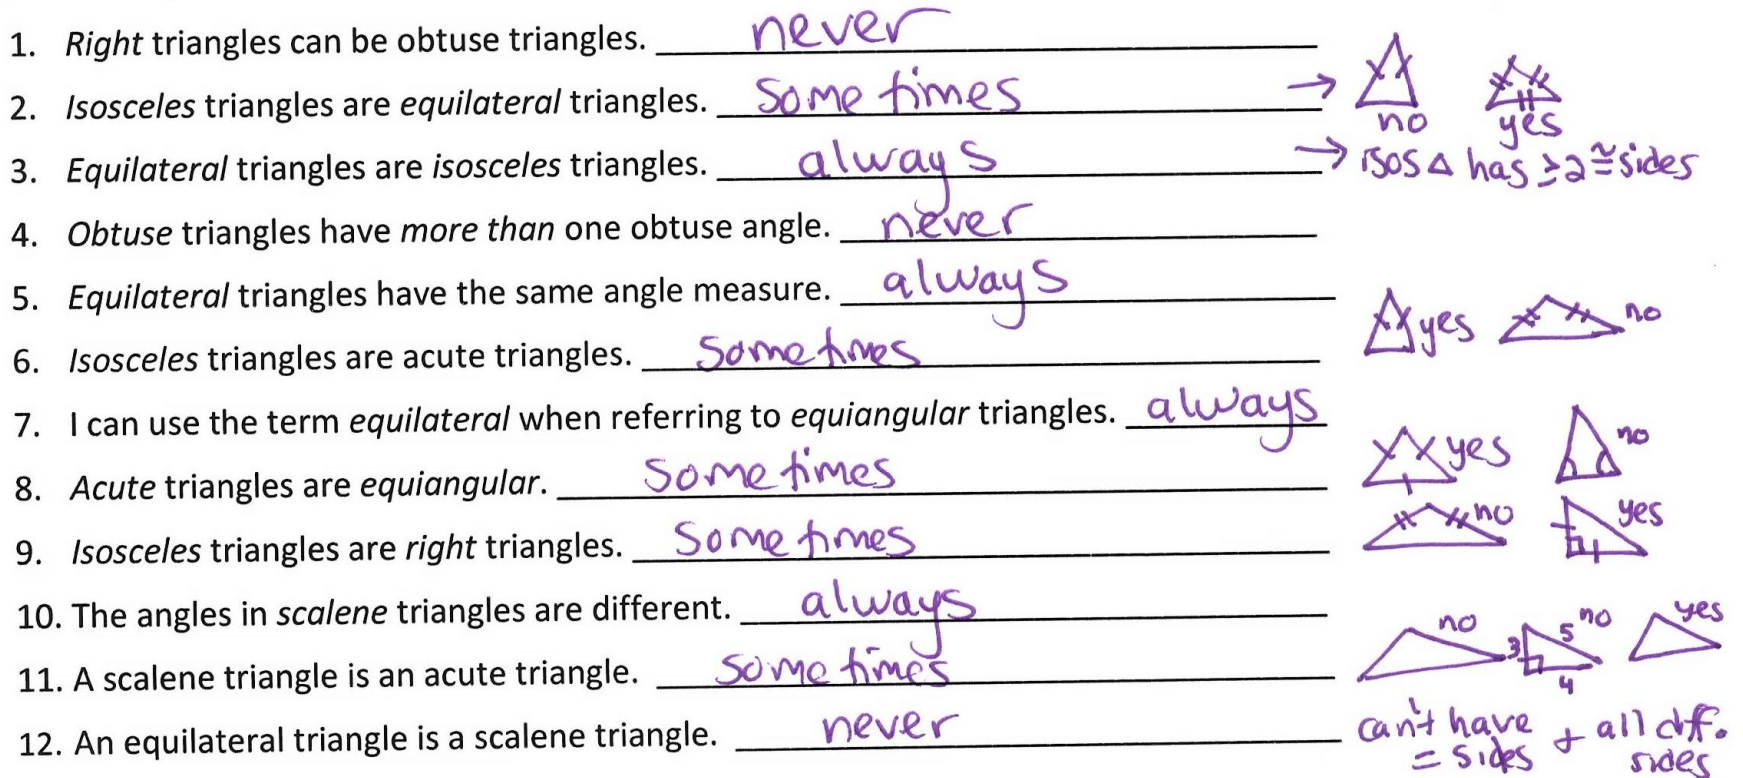 1. Right triangles can be obtuse triangles. never
2. Isosceles triangles are equilateral triangles. sometimes → no yes
3. Equilateral triangles are isosceles triangles. always → isos △ has ≥2 ≅ sides
4. Obtuse triangles have more than one obtuse angle. never
5. Equilateral triangles have the same angle measure. always
6. Isosceles triangles are acute triangles. sometimes yes no
7. I can use the term equilateral when referring to equiangular triangles. always
8. Acute triangles are equiangular. sometimes yes no
9. Isosceles triangles are right triangles. sometimes no yes
10. The angles in scalene triangles are different. always
11. A scalene triangle is an acute triangle. sometimes no 3 4 5 no yes
12. An equilateral triangle is a scalene triangle. never can't have = sides + all diff. sides